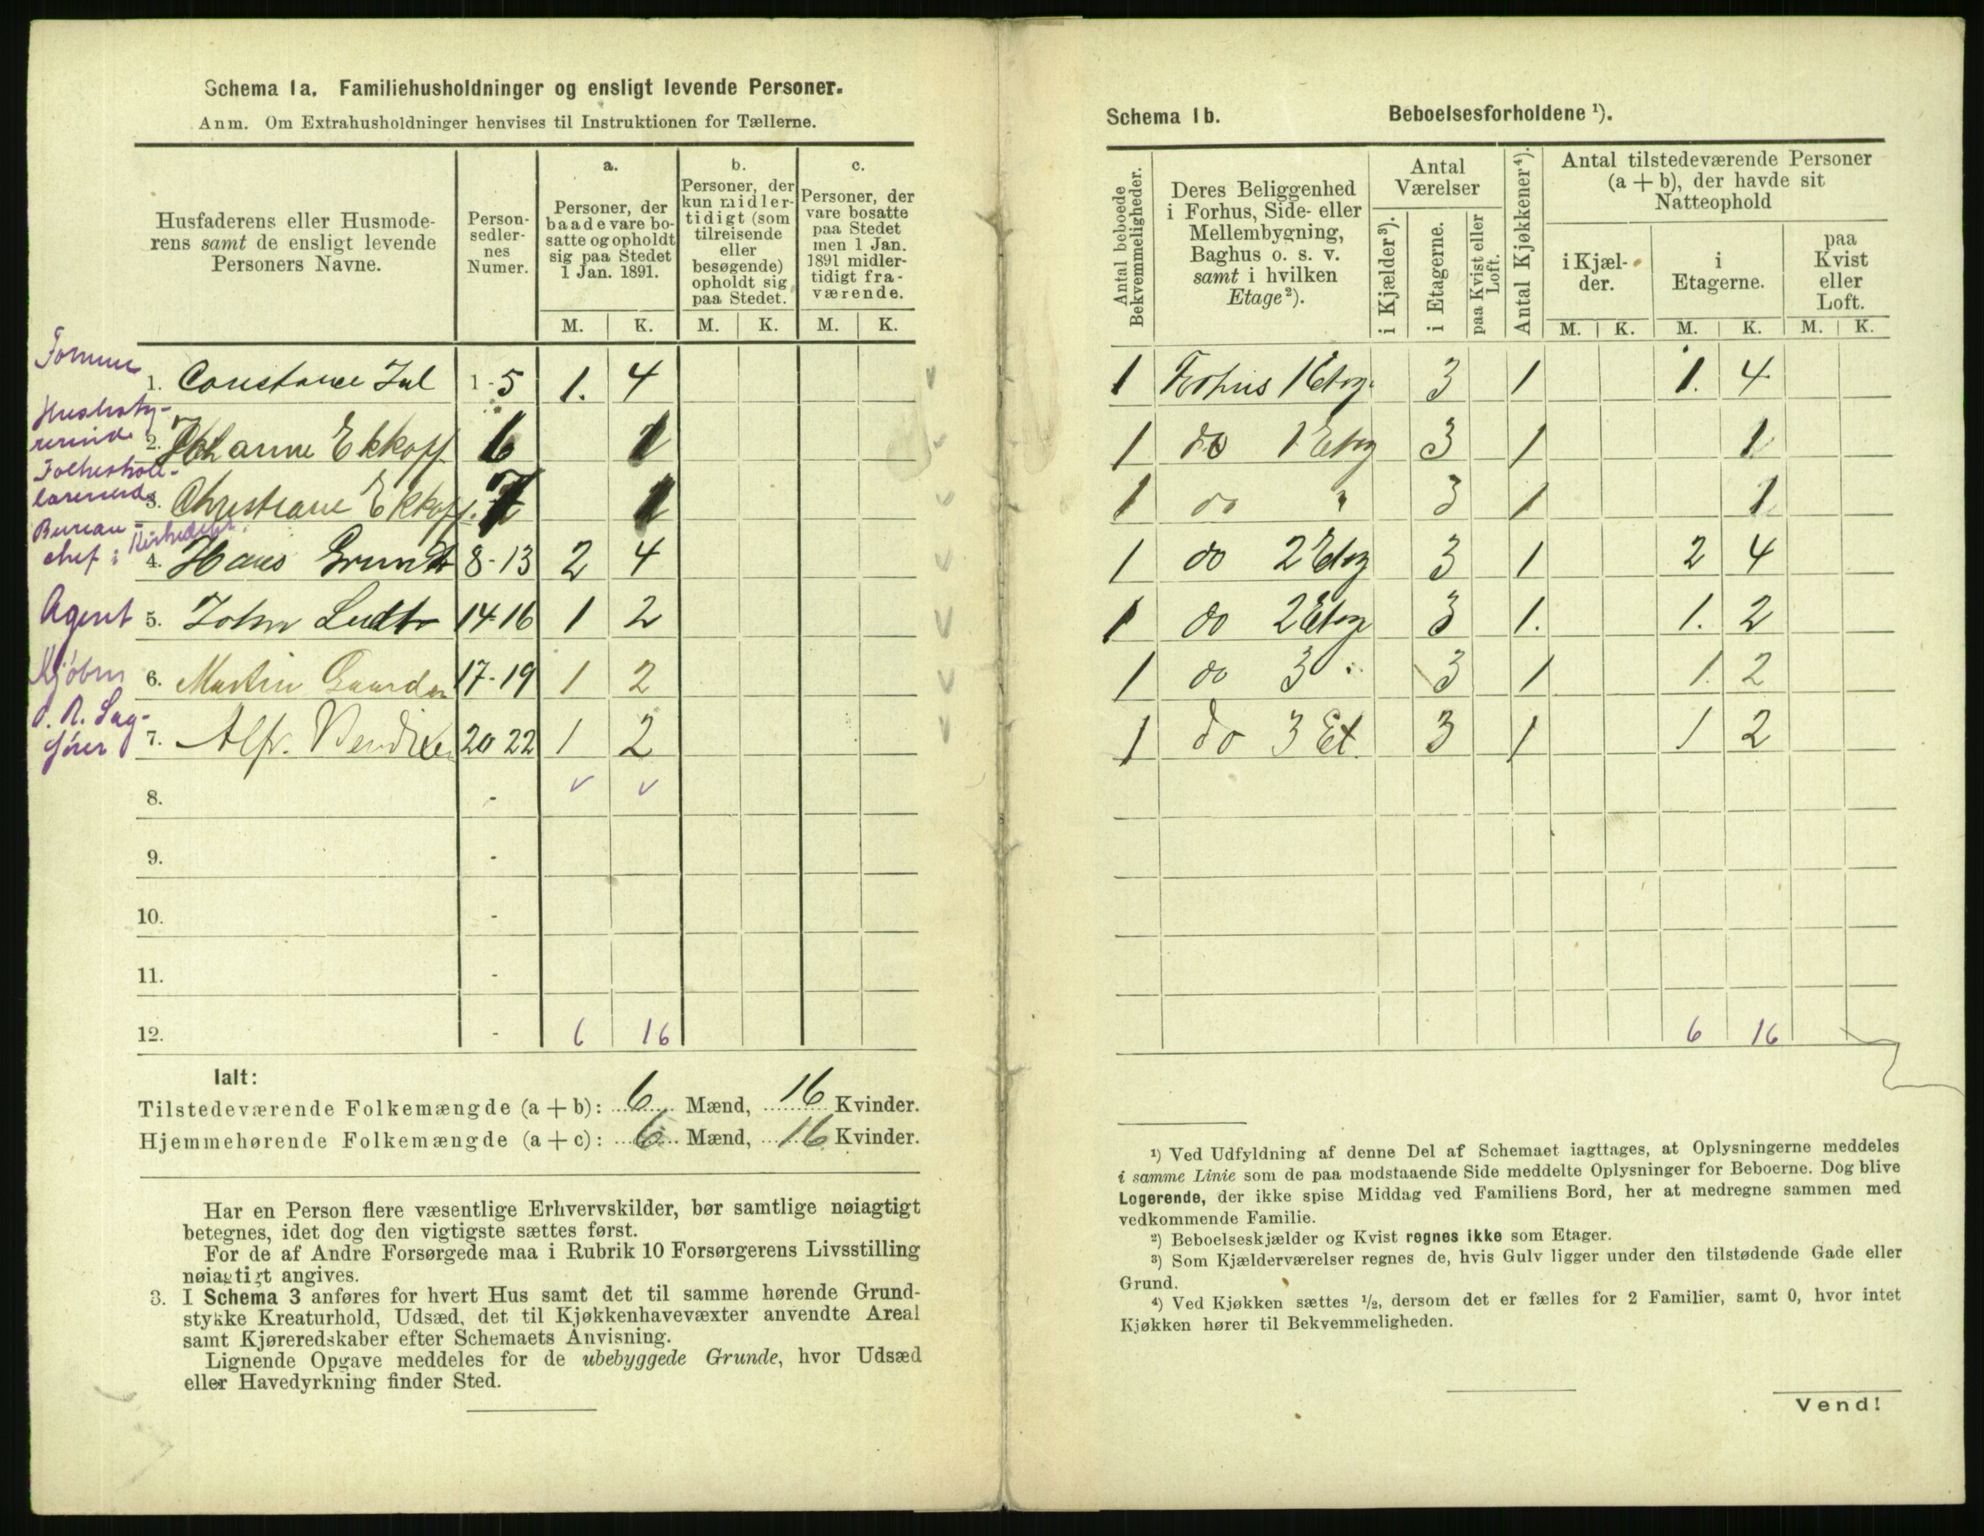 Schema 1a. Familiehusholdninger og ensligt levende Personer.
Anm. Om Extrahusholdninger henvises til Instruktionen for Tællerne.
Husfaderens eller Husmode-
rens samt de ensligt levende
Personers Navne.
Person-
sedler-
nes
Numer.
a.
Personer, der
baade vare bo-
satte og opholdt
sig paa Stedet
1 Jan. 1891.
b.
Personer, der
kun midler-
tidigt (som
tilreisende
eller
besøgende)
opholdt sig
paa Stedet.
c.
Personer, der
vare bosatte
paa Stedet
men 1 Jan.
1891 midler-
tidigt fra-
værende.
M. K. M. K. M. K.
1. Constance Jul 1-5 1. 4
Husbesty-
rerinde 2. Johanne Ekkoff 6 1
3. Christiane Ekkoff. 7 1
Bureau-
chef i 4. Hans Grundt 8-13 2 4
Agent 5. John Ludt 14-16 1 2
Kjøbm 6. Martin Gaarder 17-19 1 2
O. R. Sag-
fører 7. Alfr. Bendixen 20 22 1 2
8. - v v
9. -
10. -
11. -
12. - 6 16
Ialt:
Tilstedeværende Folkemængde (a + b): 6 Mænd, 16 Kvinder.
Hjemmehørende Folkemængde (a + c): 6 Mænd, 16 Kvinder.
Har en Person flere væsentlige Erhvervskilder, bør samtlige nøiagtigt
betegnes, idet dog den vigtigste sættes først.
For de af Andre Forsørgede maa i Rubrik 10 Forsørgerens Livsstilling
nøiagtigt angives.
3. I Schema 3 anføres for hvert Hus samt det til samme hørende Grund-
stykke Kreaturhold, Udsæd, det til Kjøkkenhavevæxter anvendte Areal
samt Kjøreredskaber efter Schemaets Anvisning.
Lignende Opgave meddeles for de ubebyggede Grunde, hvor Udsæd
eller Havedyrkning finder Sted.
Schema 1b. Beboelsesforholdene ¹).
Antal beboede
Bekvemmeligheder.
Deres Beliggenhed
i Forhus, Side- eller
Mellembygning,
Baghus o. s. v.
samt i hvilken
Etage ²).
Antal
Værelser
i Kjælder ³).
i Etagerne.
paa Kvist eller
Loft.
Antal Kjøkkener ⁴).
Antal tilstedeværende Personer
(a + b), der havde sit
Natteophold
i Kjæl-
der.
i
Etagerne.
paa
Kvist
eller
Loft.
M. K. M. K. M. K.
1 Forhus 1 Etag. 3 1 1. 4
1 do 1 Etag 3 1 1
1 do " 3 1 1
1 do 2 Etag 3 1 2 4
1 do 2 Etag 3 1. 1. 2
1 do 3 " 3 1 1. 2
1 do 3 Et 3 1 1 2
6 16
¹) Ved Udfyldning af denne Del af Schemaet iagttages, at Oplysningerne meddeles
i samme Linie som de paa modstaaende Side meddelte Oplysninger for Beboerne. Dog blive
Logerende, der ikke spise Middag ved Familiens Bord, her at medregne sammen med
vedkommende Familie.
²) Beboelseskjælder og Kvist regnes ikke som Etager.
³) Som Kjælderværelser regnes de, hvis Gulv ligger under den tilstødende Gade eller
Grund.
⁴) Ved Kjøkken sættes ¹/₂, dersom det er fælles for 2 Familier, samt 0, hvor intet
Kjøkken hører til Bekvemmeligheden.
Vend!